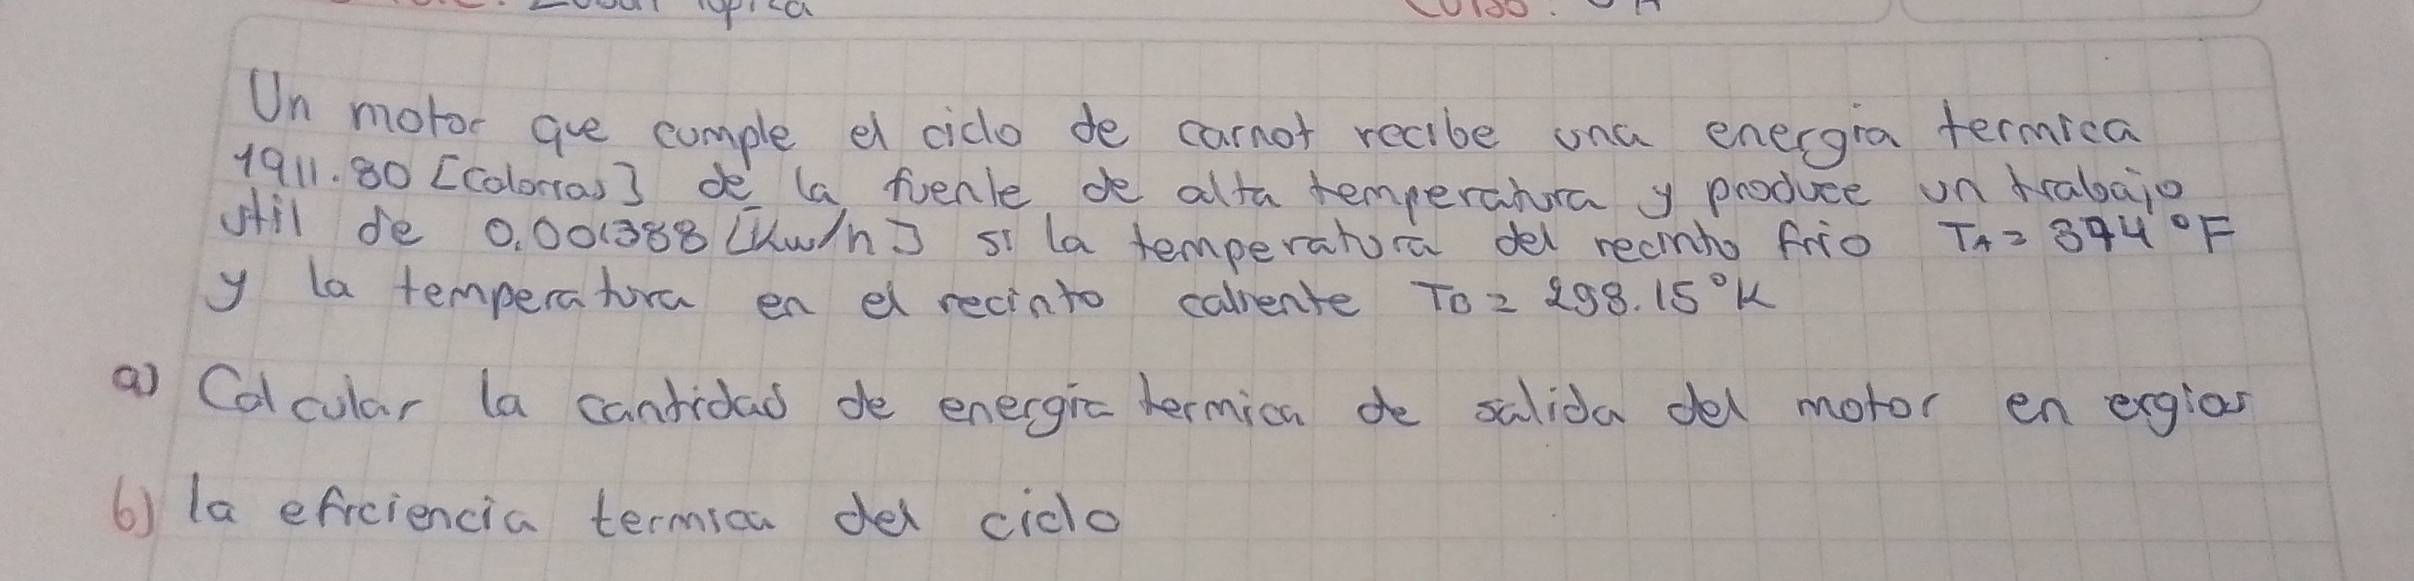 Un motor que cumple el ciclo de carnot recibe una energia termica
1911.80 [Calorias] de la fuente de alta temperatura y produce un trabajo
util de 0.001388 [Kw/h] si la temperatura del recinto frio TA = 394 °F
y la temperatura en el recinto caliente TB = 298.15 °K
a) Calcular la cantidad de energia termica de salida del motor en ergios
b) la eficiencia termica del ciclo